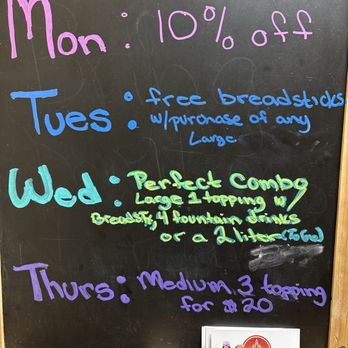 Mon: 10% off
Tues: free breadsticks
w/purchase of any
Large
Wed: Perfect Combo
Large 1 topping w/
BreadSTX, 4 fountain drinks
or a 2 liter (ToGo)
Thurs: Medium 3 topping
for $20